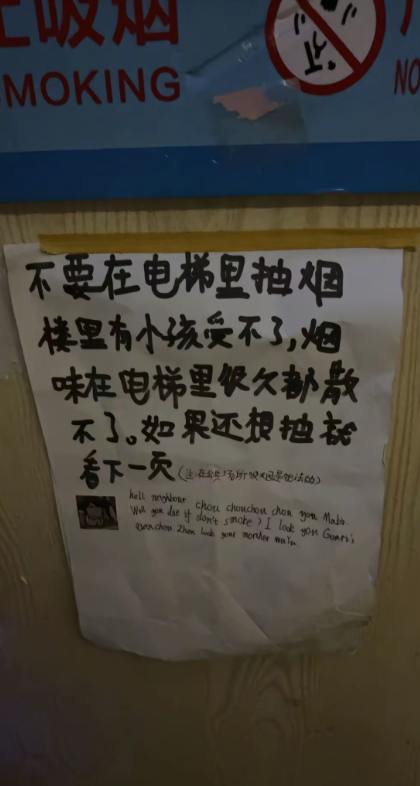 止吸烟
SMOKING
NO
不要在电梯里抽烟
楼里有小孩受不了,烟
味在电梯里很久都散
不了。如果还想抽就
看下一页(注:在公共场所吸烟是违法的)
hell neighbour chou chouchou chou you Main.
Will you die if don't smoke? I look you
Look your mother main.